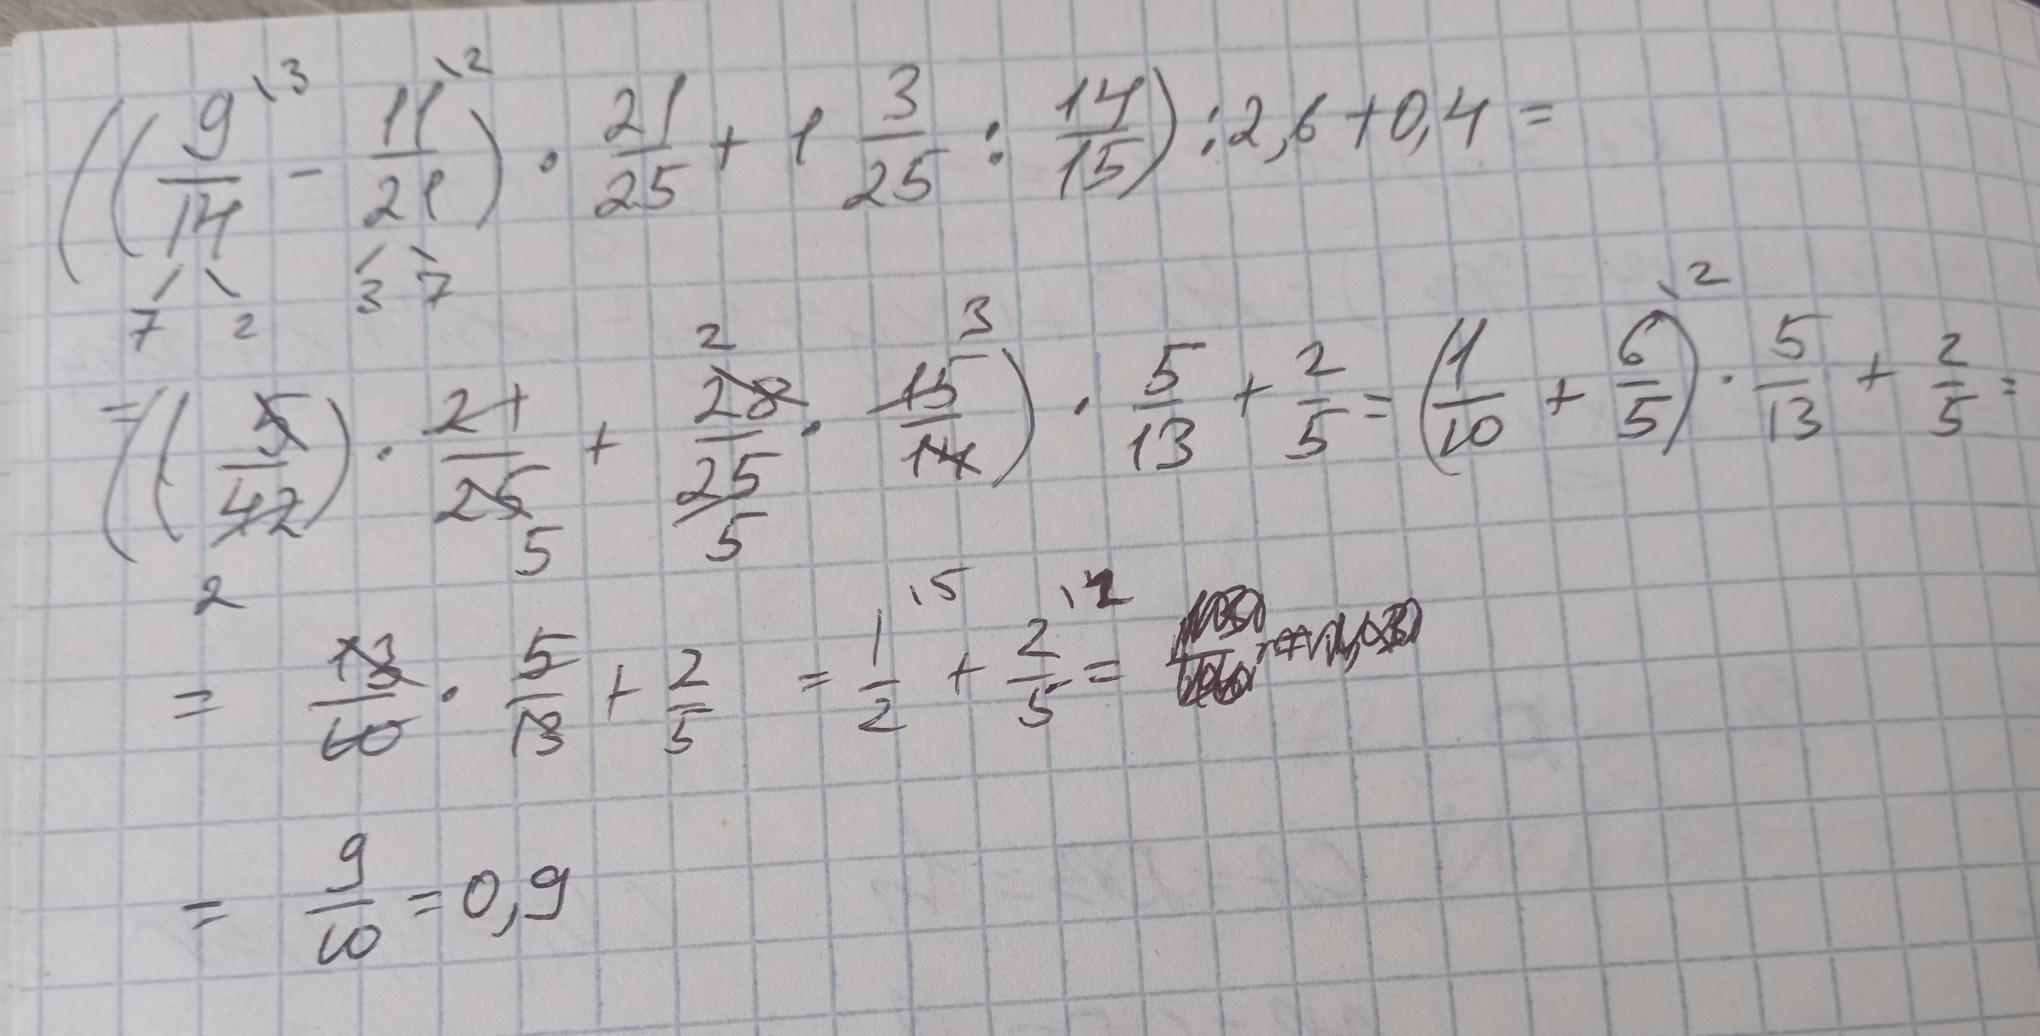 ((9/14 \3 - 11/21 \2) · 21/25 + 1 3/25 : 14/15) : 2,6 + 0,4 =
7 2 3 7
= ((5/42) · 21/25 + 28/25 · 15/14) · 5/13 + 2/5 = (1/10 + 6/5 \2) · 5/13 + 2/5 =
2 5 2 5 3
= 13/10 · 5/13 + 2/5 = 1/2 \5 + 2/5 \2 =
= 9/10 = 0,9